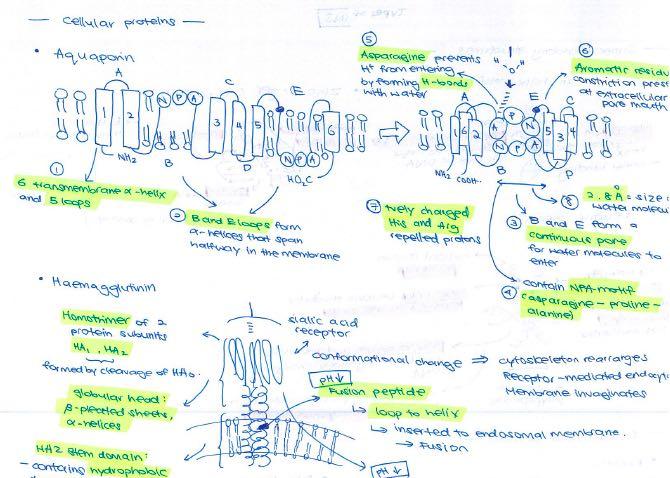 — Cellular proteins —
• Aquaporin
A
B
C
D
E
N P A
1
2
3
4
5
6
N P A
NH2
HO2C
①
6 transmembrane α-helix
and 5 loops
② B and E loops form
α-helices that span
halfway in the membrane
⑤
Asparagine prevents
H+ from entering
by forming H-bonds
with water
H O H
⑥
Aromatic residu
constriction pres
at extracellular
pore mouth
A
E
C
P
N
N
A
A
P
1
6
2
5
3
4
B
D
NH2 COOH
⑦ +vely charged
His and Arg
repelled protons
⑧ 2.8 Å = size
water molecu
③ B and E form a
continuous pore
for water molecules to
enter
④ contain NPA-motif
(asparagine-proline-
alanine)
• Haemagglutinin
Homotrimer of 2
protein subunits
HA1, HA2
formed by cleavage of HA0.
globular head:
β-pleated sheets,
α-helices
HA2 stem domain:
- contains hydrophobic
sialic acid
receptor
conformational change ⇒ cytoskeleton rearranges
Receptor-mediated endocyt
Membrane invaginates
pH↓
Fusion peptide
↳ loop to helix
↳ inserted to endosomal membrane.
→ Fusion
pH↓